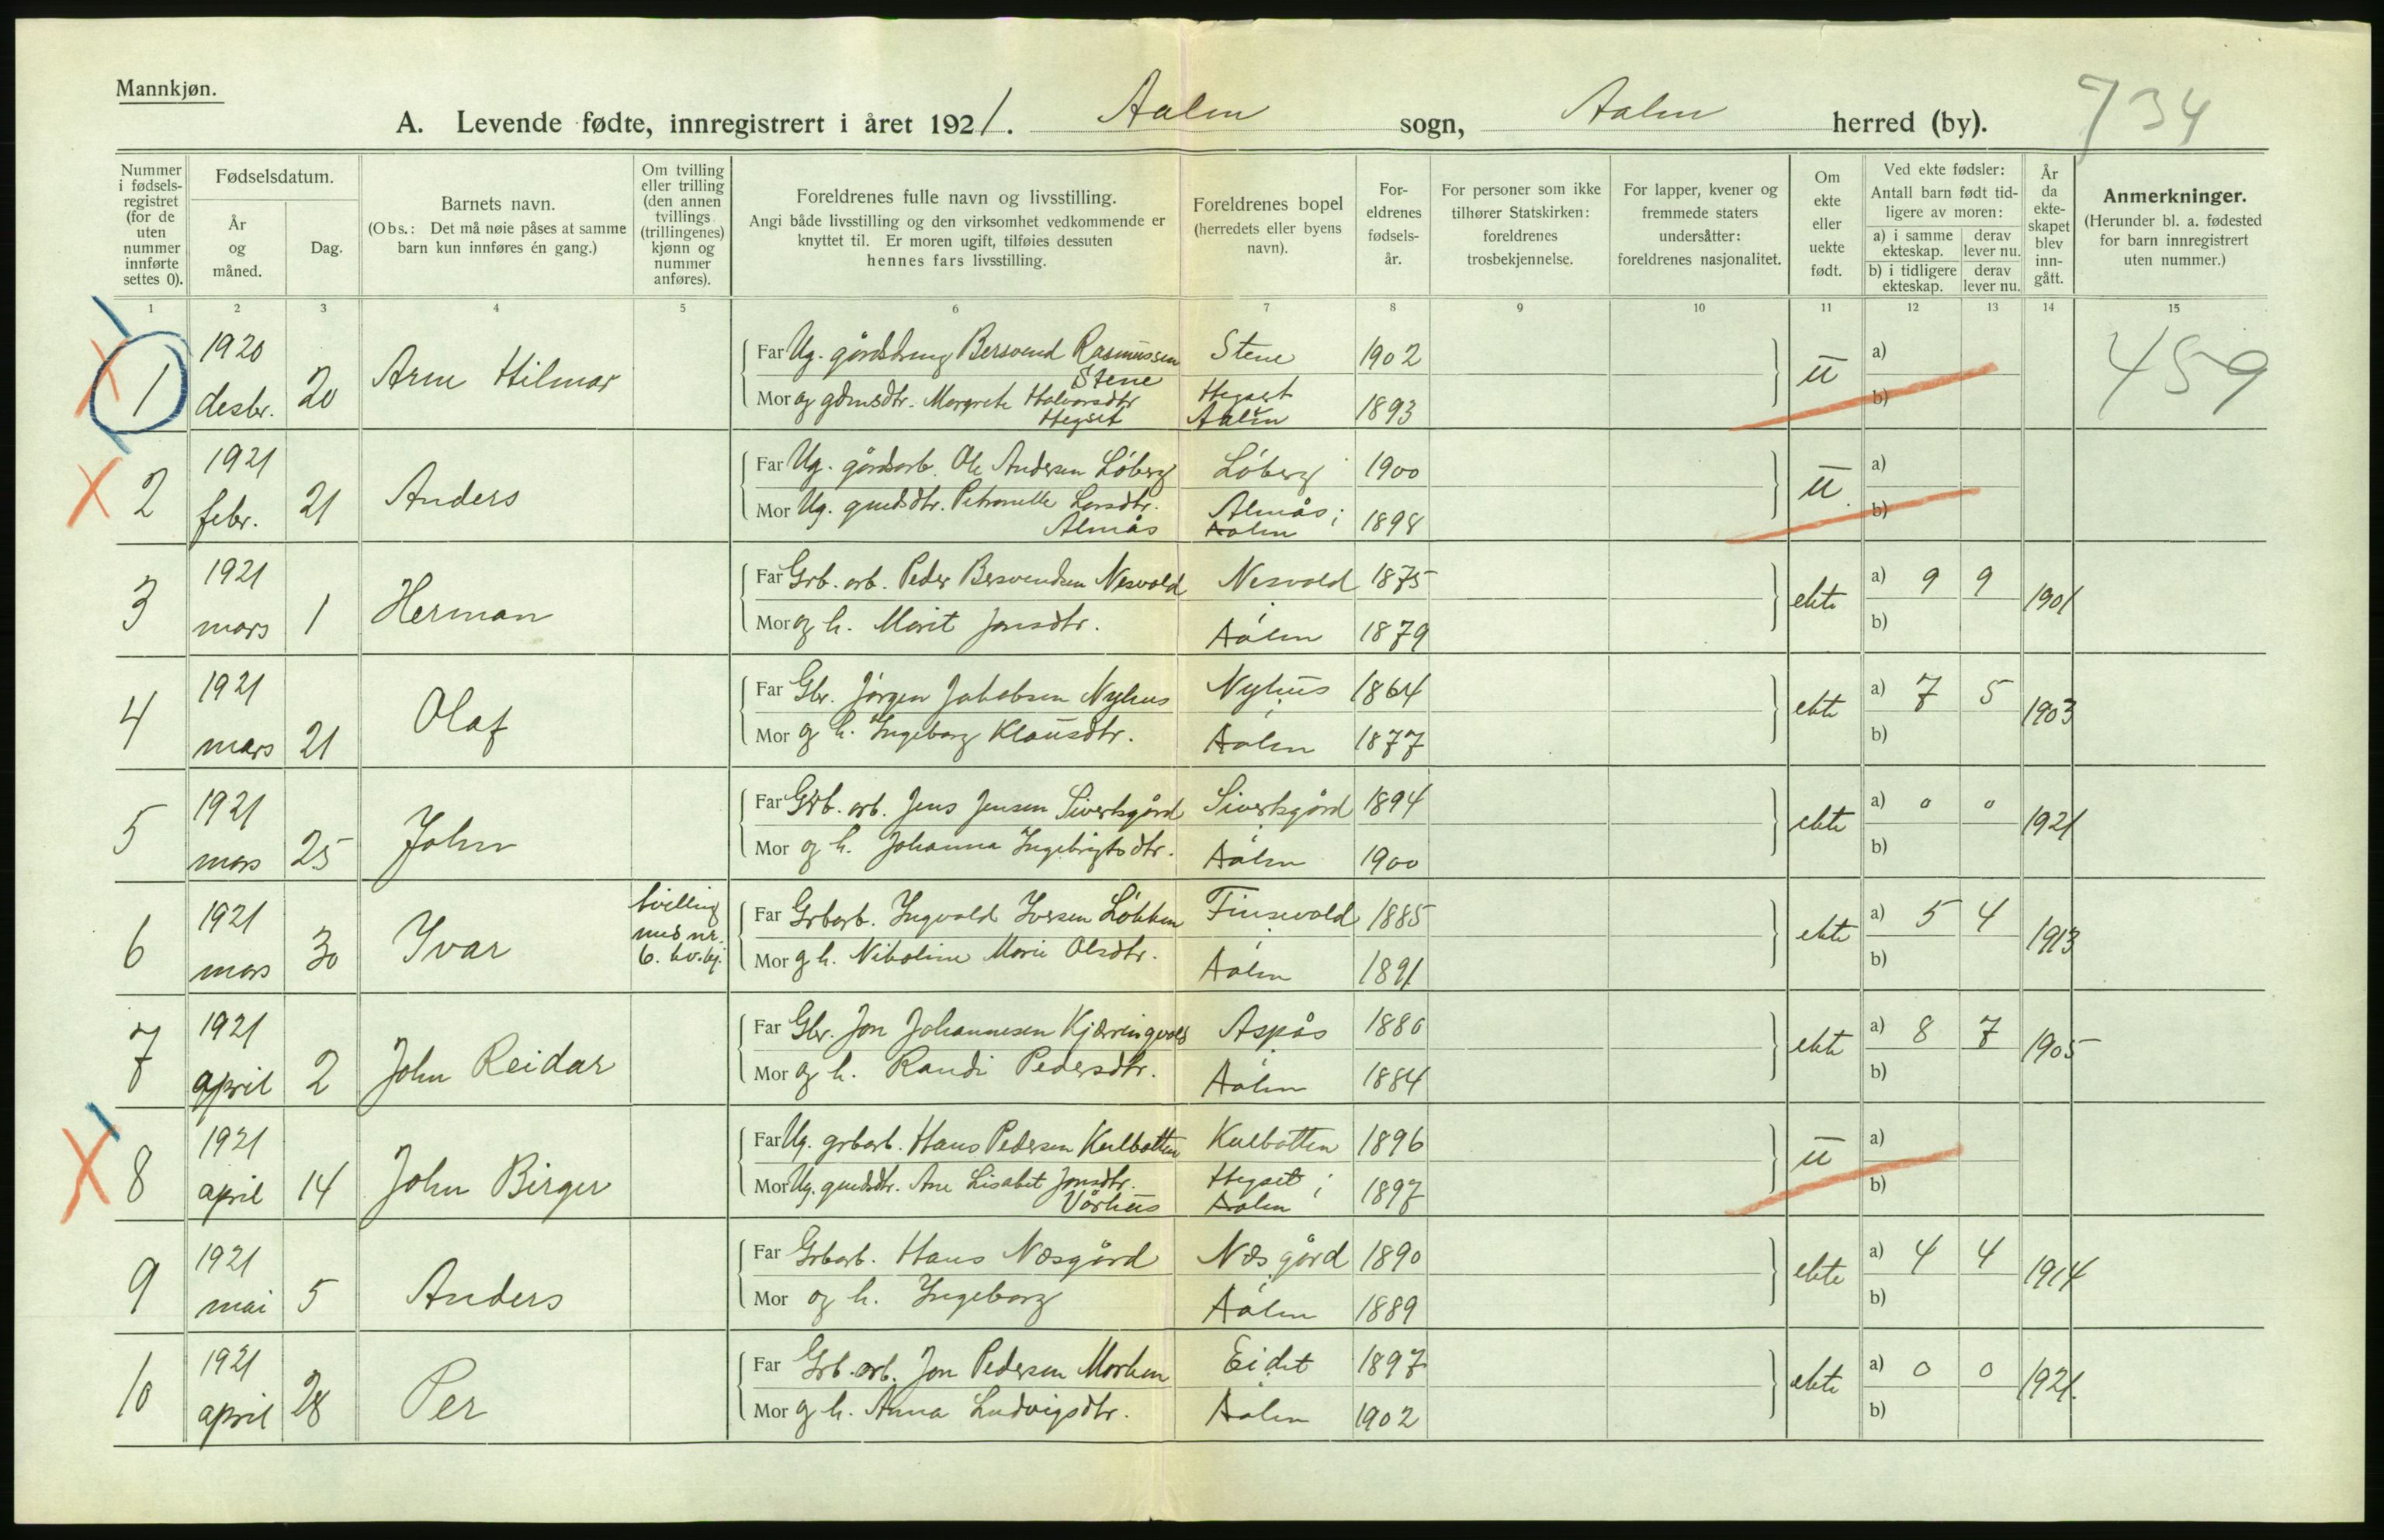 Mannkjøn.
A. Levende fødte, innregistrert i året 1921. Aalen sogn, Aalen herred (by). 734
Nummer i fødsels-registret (for de uten nummer innførte settes 0).
Fødselsdatum.
År og måned.
Dag.
Barnets navn.
(Obs.: Det må nøie påses at samme barn kun innføres én gang.)
Om tvilling eller trilling (den annen tvillings (trillingenes) kjønn og nummer anføres).
Foreldrenes fulle navn og livsstilling.
Angi både livsstilling og den virksomhet vedkommende er knyttet til. Er moren ugift, tilføies dessuten hennes fars livsstilling.
Foreldrenes bopel (herredets eller byens navn).
For-eldrenes fødsels-år.
For personer som ikke tilhører Statskirken: foreldrenes trosbekjennelse.
For lapper, kvener og fremmede staters undersåtter: foreldrenes nasjonalitet.
Om ekte eller uekte født.
Ved ekte fødsler:
Antall barn født tid-ligere av moren:
a) i samme ekteskap. derav lever nu.
b) i tidligere ekteskap. derav lever nu.
År da ekte-skapet blev inn-gått.
Anmerkninger.
(Herunder bl. a. fødested for barn innregistrert uten nummer.)
1 2 3 4 5 6 7 8 9 10 11 12 13 14 15
1 1920 desbr. 20 Arne Hilmar
Far Ug. gårdsdreng Bersvend Rasmussen Stene Stene 1902
Mor og gdmsdtr. Margrete Halvorsdtr Hegset Hegset Aalen 1893
u a) b) 459
2 1921 febr. 21 Anders
Far Ug. gårdsarb. Ole Andersen Løberg Løberg 1900
Mor Ug. gmdsdtr. Petronelle Larsdtr. Almås Almås i Aalen 1898
u a) b)
3 1921 mars 1 Herman
Far Grb. arb. Peder Bersvendsen Nesvold Nesvold 1875
Mor og h. Marit Jonsdtr. i Aalen 1879
ekte a) 9 9 b) 1901
4 1921 mars 21 Olaf
Far Gbr. Jørgen Jakobsen Nyhus Nyhus 1864
Mor og h. Ingeborg Klausdtr. i Aalen 1877
ekte a) 7 5 b) 1903
5 1921 mars 25 John
Far Grb. arb. Jens Jensen Sivertsgård Sivertsgård 1894
Mor og h. Johanna Ingebrigtsdtr. i Aalen 1900
ekte a) 0 0 b) 1921
6 1921 mars 30 Ivar tvilling med nr. 6. kv.kj.
Far Grbarb. Ingvald Iversen Løkken Finsevold 1885
Mor og h. Nikoline Marie Olsdtr. i Aalen 1891
ekte a) 5 4 b) 1913
7 1921 april 2 John Reidar
Far Gbr. Jon Johannesen Kjæringvold Aspås 1880
Mor og h. Randi Pedersdtr. i Aalen 1884
ekte a) 8 7 b) 1905
8 1921 april 14 John Birger
Far Ug. grbarb. Hans Pedersen Kulbotten Kulbotten 1896
Mor Ug. gmdsdtr. Ane Lisabet Jonsdtr. Vårhus Hegset i Aalen 1897
u a) b)
9 1921 mai 5 Anders
Far Grbarb. Hans Næsgård Næsgård 1890
Mor og h. Ingeborg i Aalen 1889
ekte a) 4 4 b) 1914
10 1921 april 28 Per
Far Grb. arb. Jon Pedersen Morken Eidet 1897
Mor og h. Anna Ludvigsdtr. i Aalen 1902
ekte a) 0 0 b) 1921.